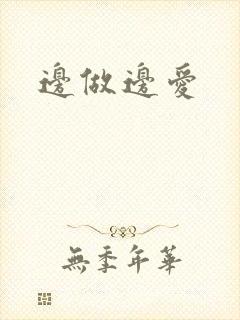 邊做邊愛
無季年華